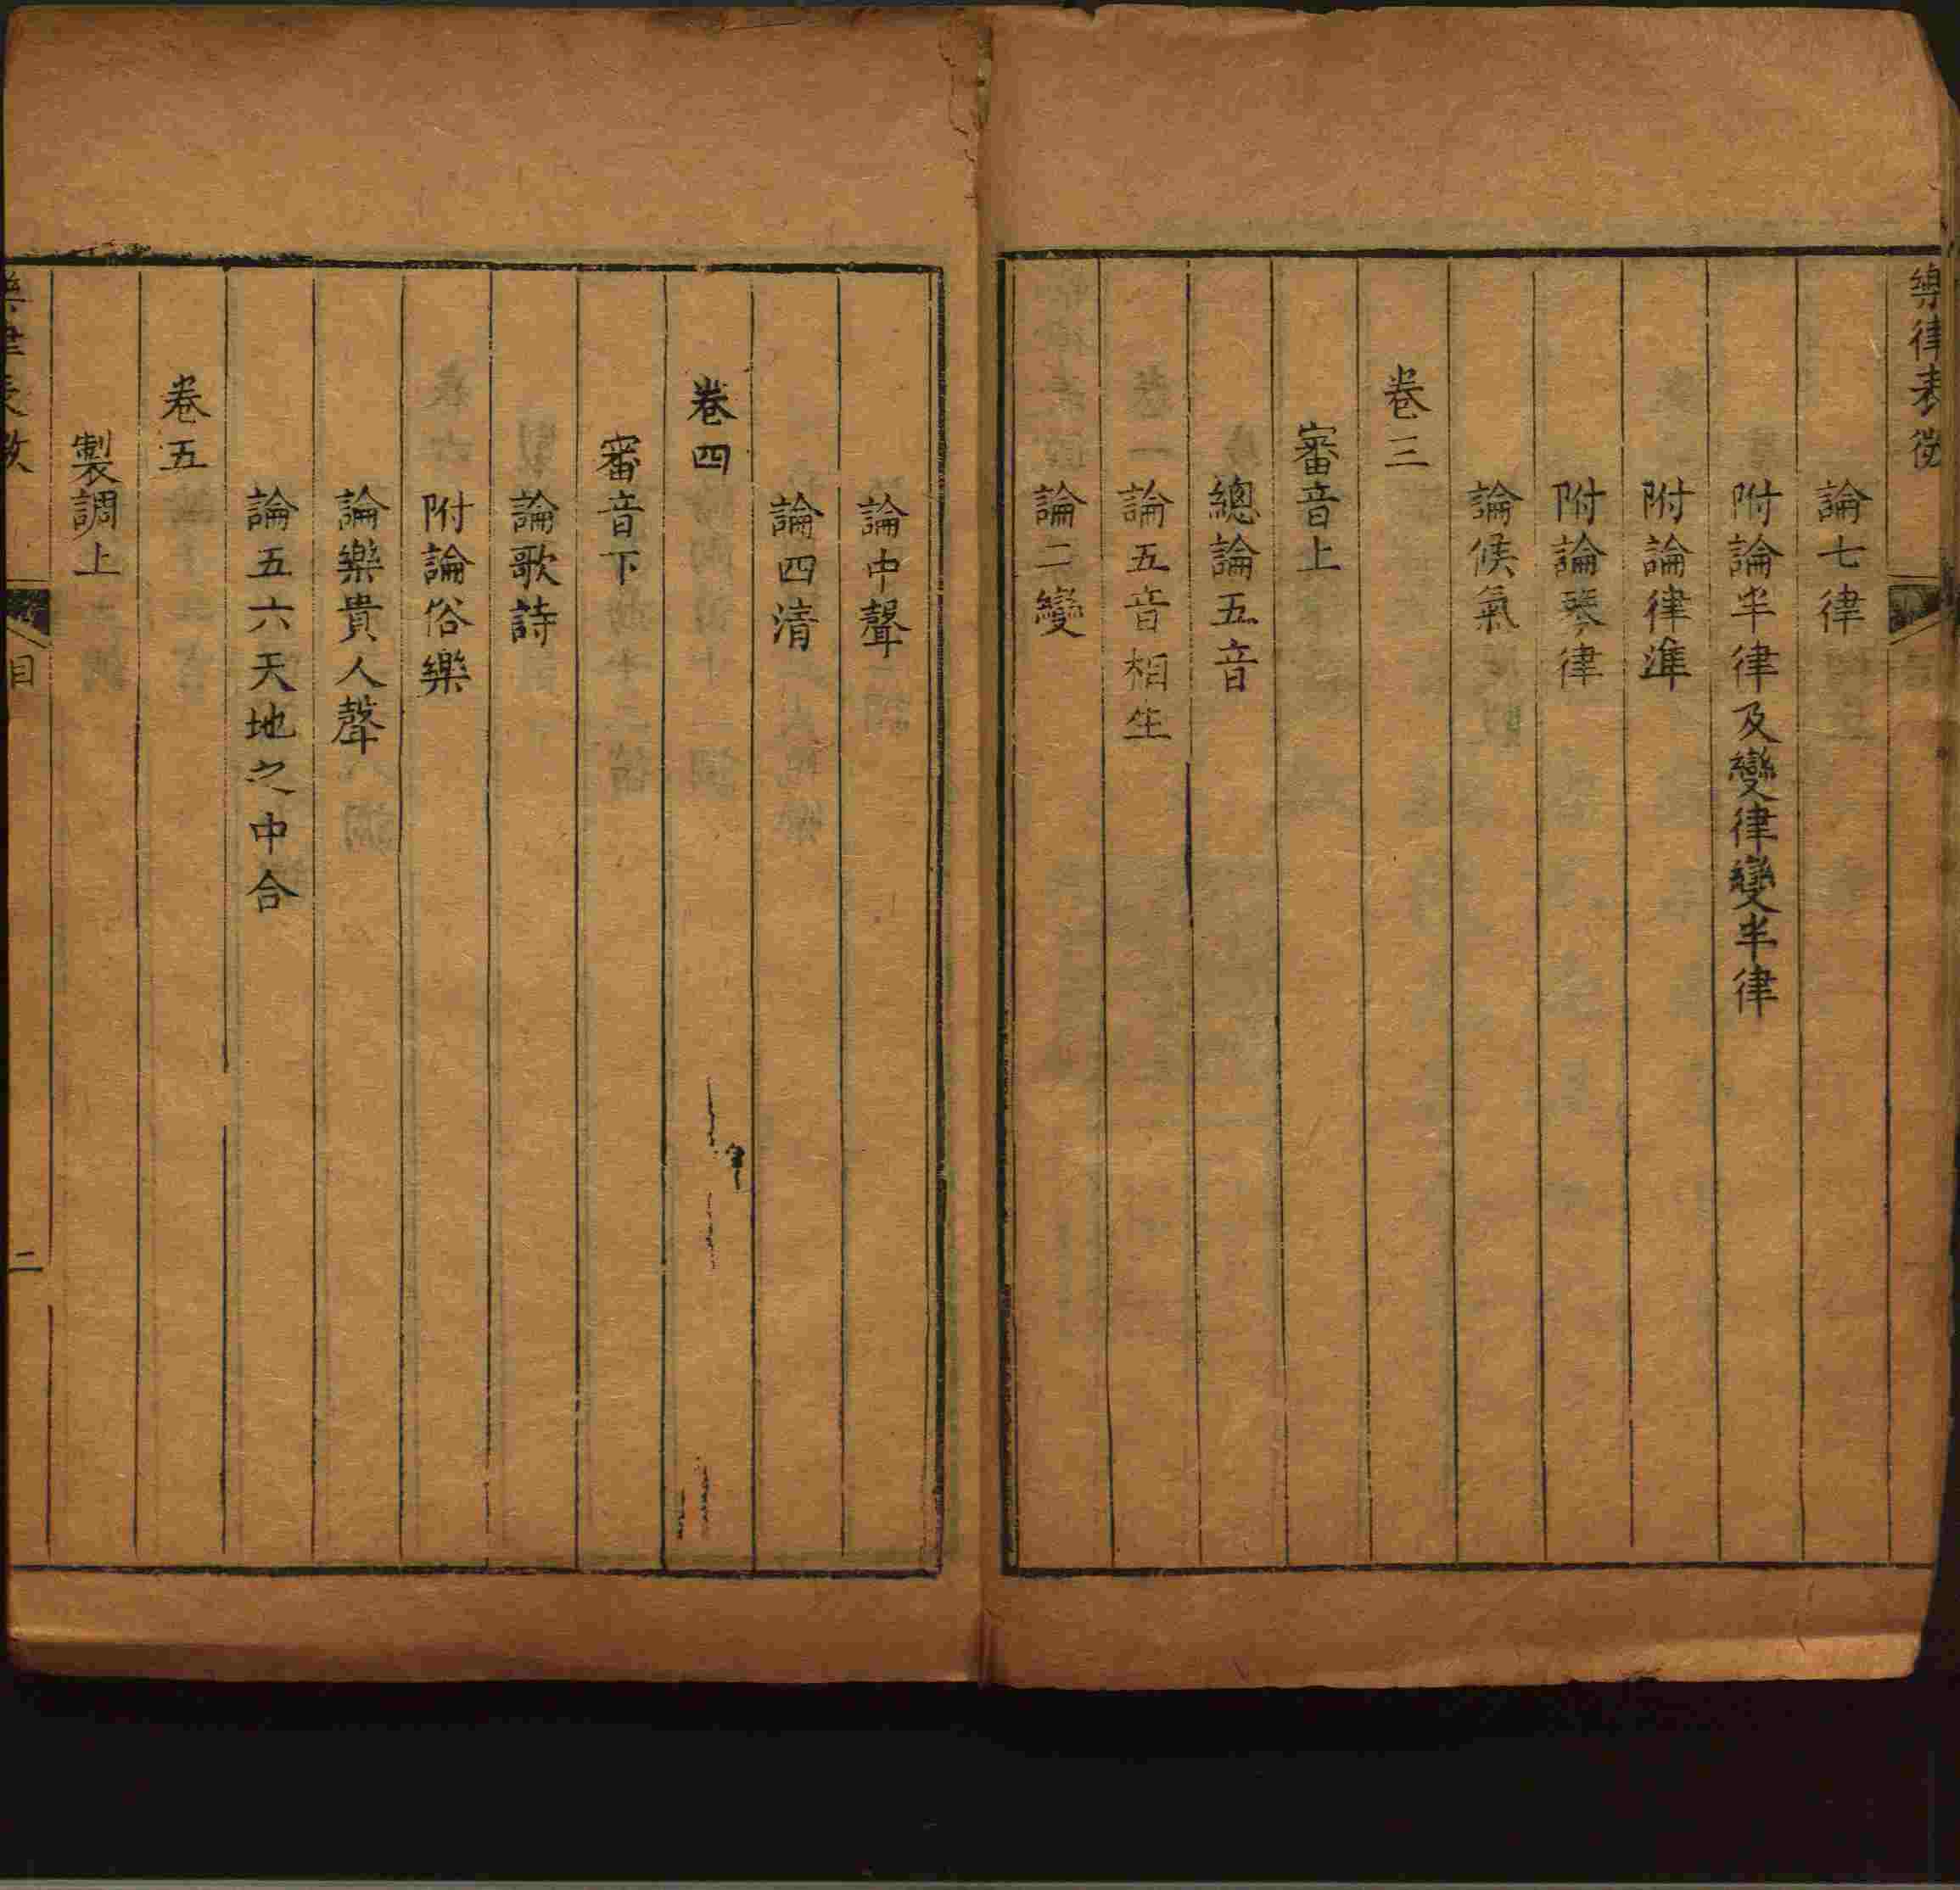 樂律表微
論七律
附論半律及變律變半律
附論律準
附論琴律
論候氣
卷三
審音上
總論五音
論五音相生
論二變
論中聲
論四清
卷四
審音下
論歌詩
附論俗樂
論樂貴人聲
論五六天地之中合
卷五
製調上
樂律表微
目
二